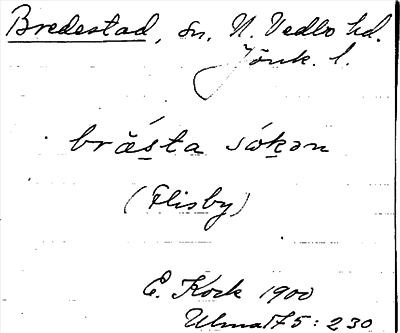 Bredestad, sn, N. Vedbo hd.
Jönk. l.
brǻs̲ta sók̲ən
(Flisby)
E. Kock 1900
Ulma 175: 230